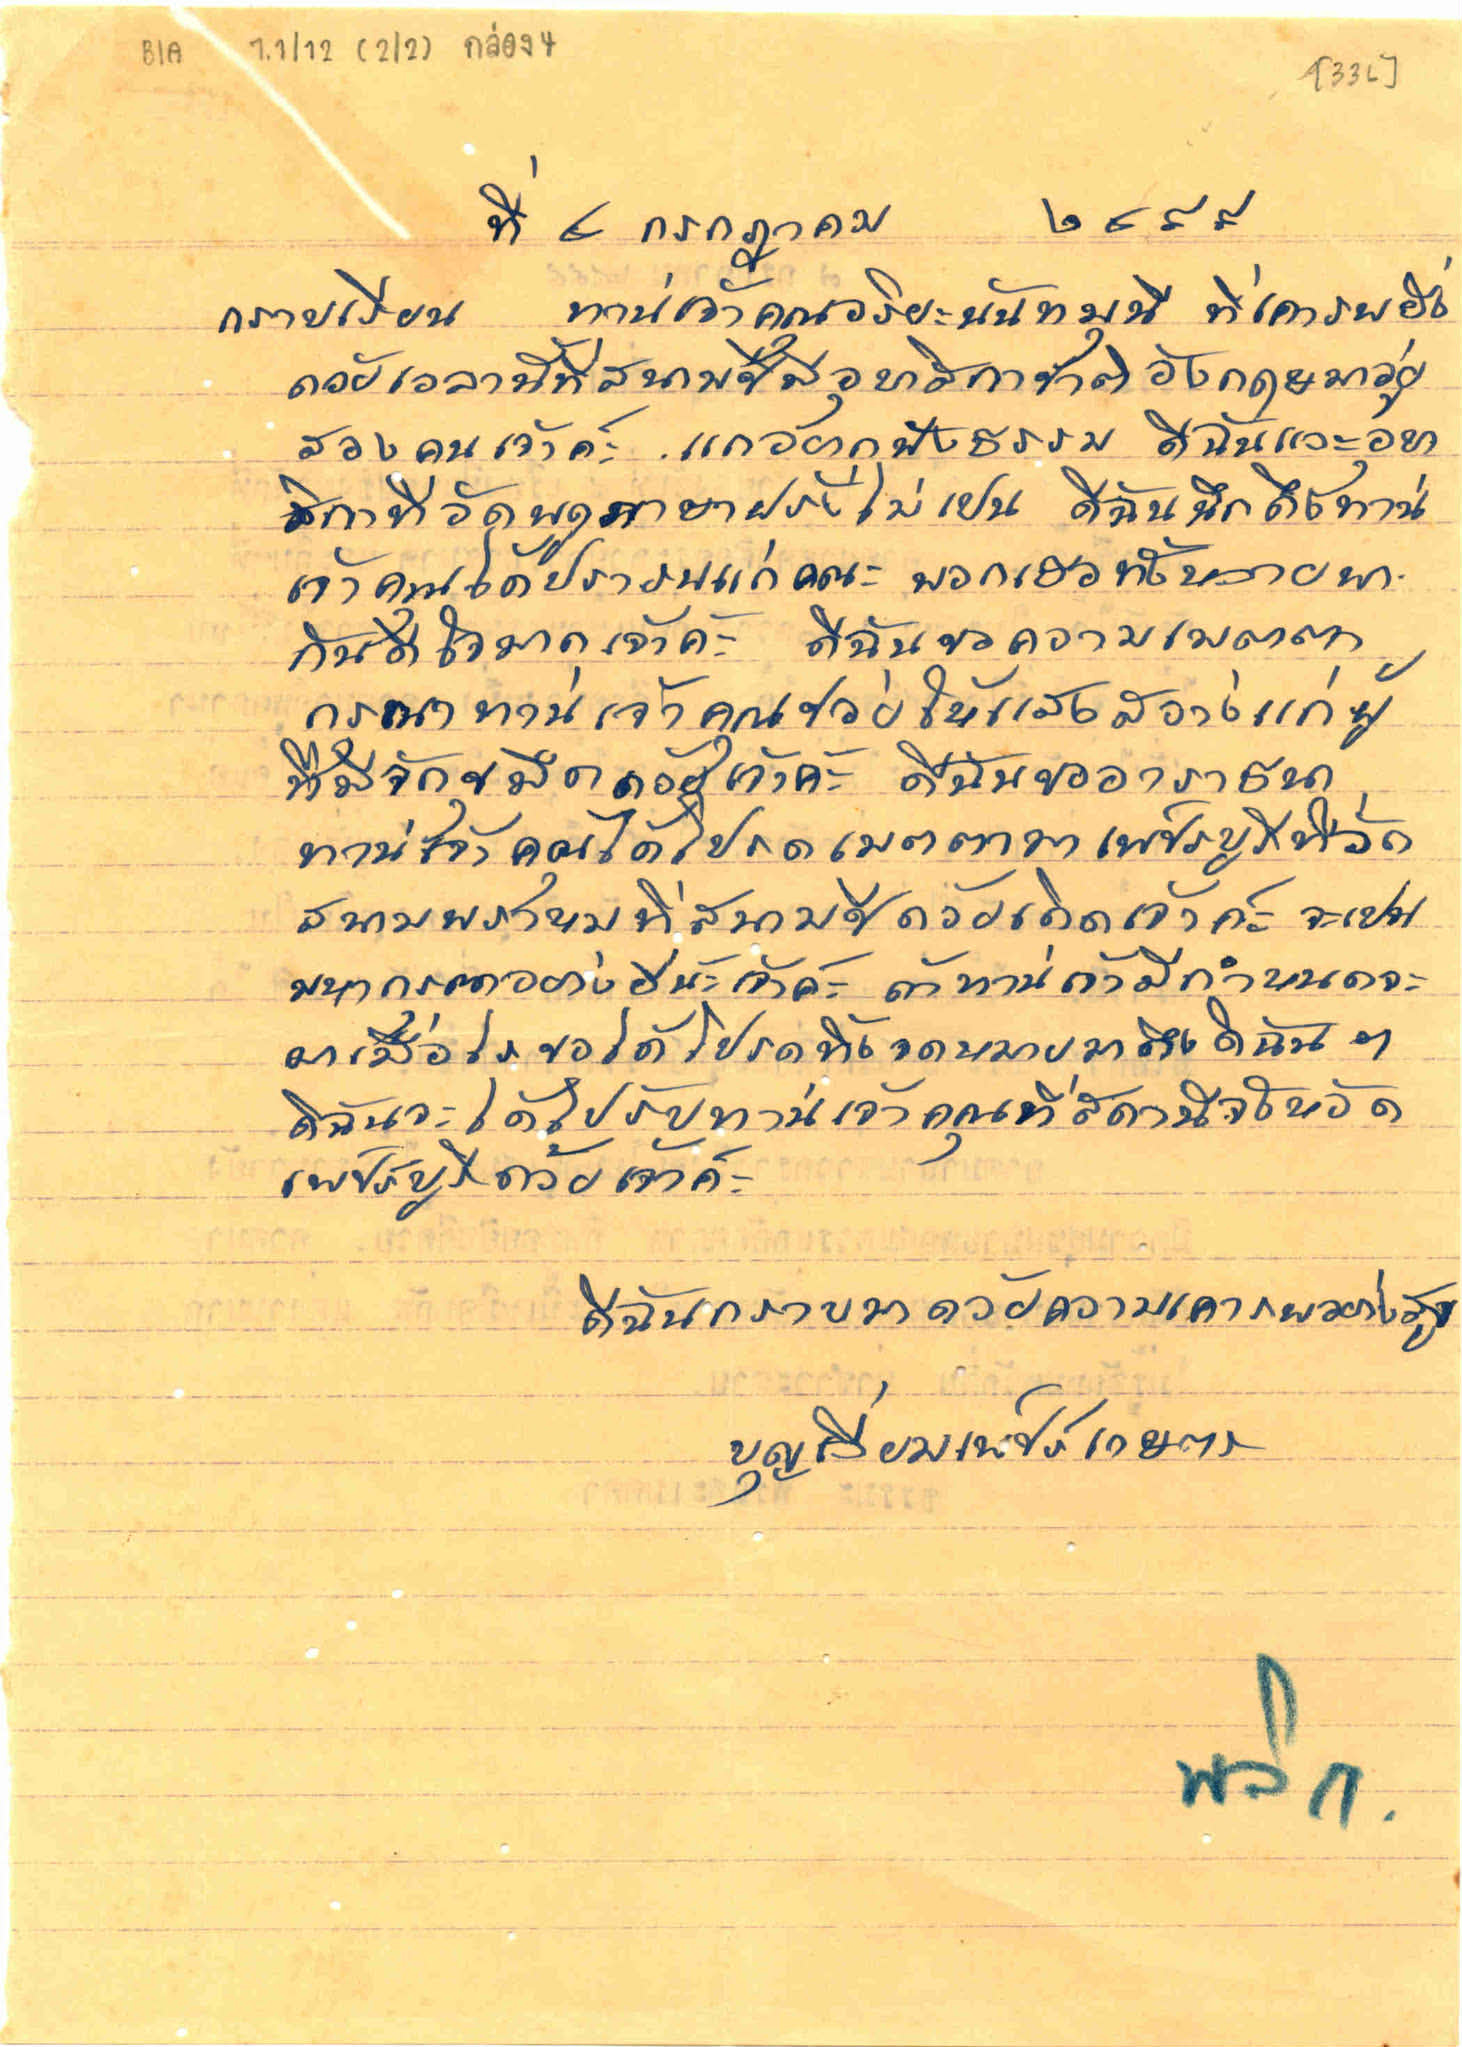 BIA 1.1/12 (2/2) กล่อง 4
[336]
ที่ ๔ กรกฎาคม ๒๔๙๙
กราบเรียน ท่านเจ้าคุณอริยะนันทมุนี ที่เคารพยิ่ง
ด้วยเวลานี้ที่สนามชีมีอุบาสิกาชาติอังกฤษมาอยู่
สองคนเจ้าค๊ะ แกอยากฟังธรรม ดีฉันและอุบา
สิกาที่วัดพูดภาษาฝรั่งไม่เปน ดีฉันนึกถึงท่าน
เจ้าคุณได้ปรารบแก่คณะ พวกเธอทั้งหลายพา
กันดีใจมากเจ้าค๊ะ ดีฉันขอความเมตตา
กรุณาท่านเจ้าคุณช่วยให้แสงสว่างแก่ผู้
ที่มีจักขุมืดด้วยเจ้าค๊ะ ดีฉันขออาราธนา
ท่านเจ้าคุณได้โปรดเมตตามาเพ็ชร์บุรีที่วัด
สนามพราหมที่สนามชีด้วยเถิดเจ้าค๊ะ จะเปน
มหากรุณาอย่างยิ่งเจ้าค๊ะ ถ้าท่านถ้ามีกำหนดจะ
มาเมื่อไรขอได้โปรดทิ้งจดหมายมาถึงดิฉัน ๆ
ดิฉันจะได้ไปรับท่านเจ้าคุณที่สถานีจังหวัด
เพ็ชร์บุรีด้วยเจ้าค๊ะ
ดีฉันกราบมาด้วยความเคารพอย่างสูง
บุญเยี่ยมเพ็ชร์เกษตร